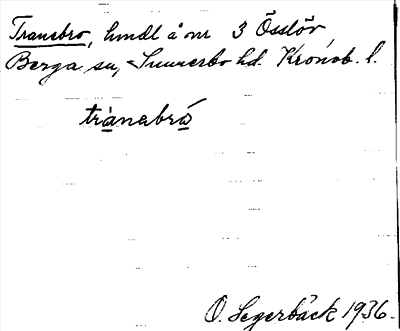 Tranebro, hmdl å nr 3 Össlöv
Berga sn, Sunnerbo hd. Kronob. l.
trànabró
O. Segerbäck 1936.